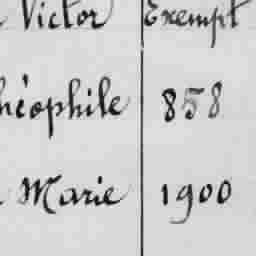 Victor Exempt
héophile 858
Marie 1900